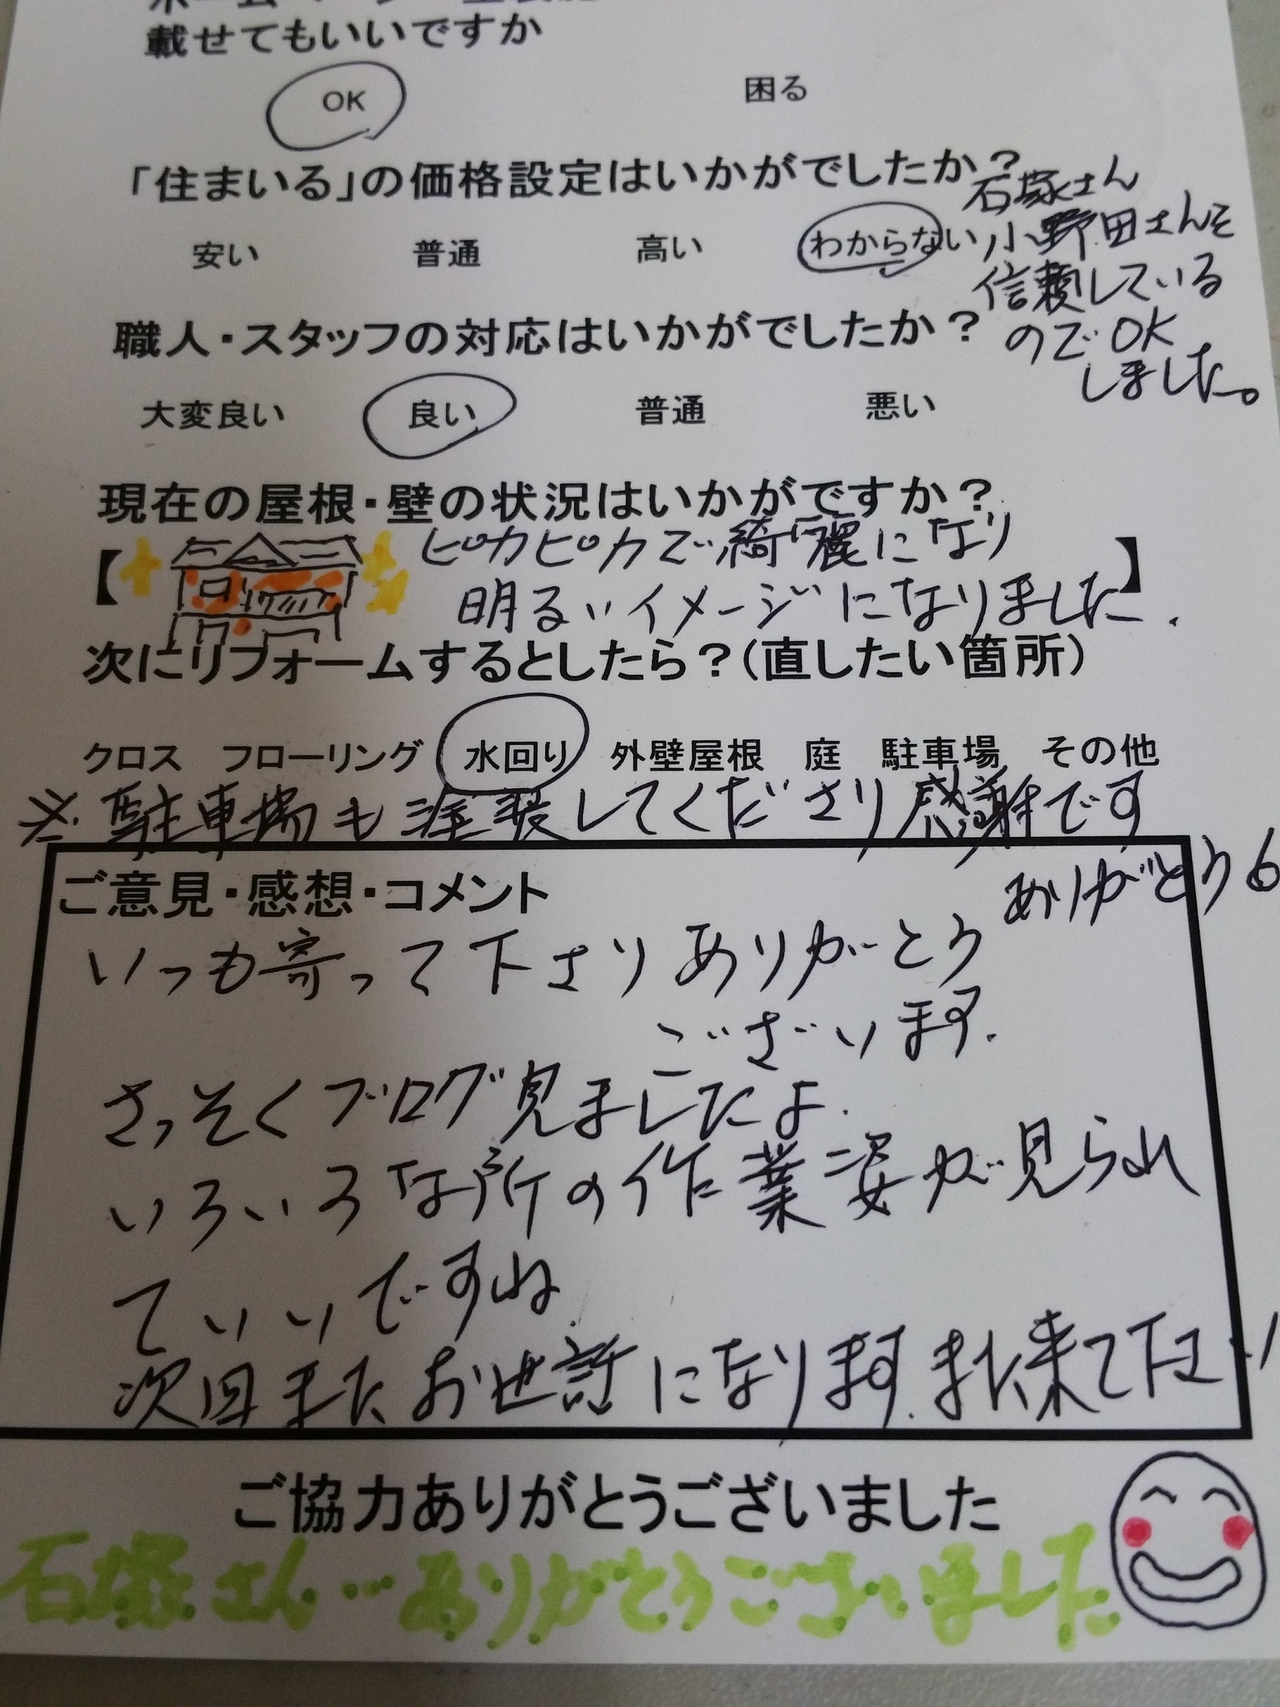 載せてもいいですか
OK 困る
「住まいる」の価格設定はいかがでしたか？
安い 普通 高い わからない
石塚さん
小野田さんを
信頼している
のでOK
しました。
職人・スタッフの対応はいかがでしたか？
大変良い 良い 普通 悪い
現在の屋根・壁の状況はいかがですか？
【 ピカピカで綺麗になり
明るいイメージになりました. 】
次にリフォームするとしたら？（直したい箇所）
クロス フローリング 水回り 外壁屋根 庭 駐車場 その他
※駐車場も塗装してくださり感謝です
ありがとう
ご意見・感想・コメント
いつも寄って下さりありがとう
ございます.
さっそくブログ見ましたよ.
いろいろな所の作業姿が見られ
ていいですね
次回またお世話になります.また来て下さい
ご協力ありがとうございました
石塚さん…ありがとうございました